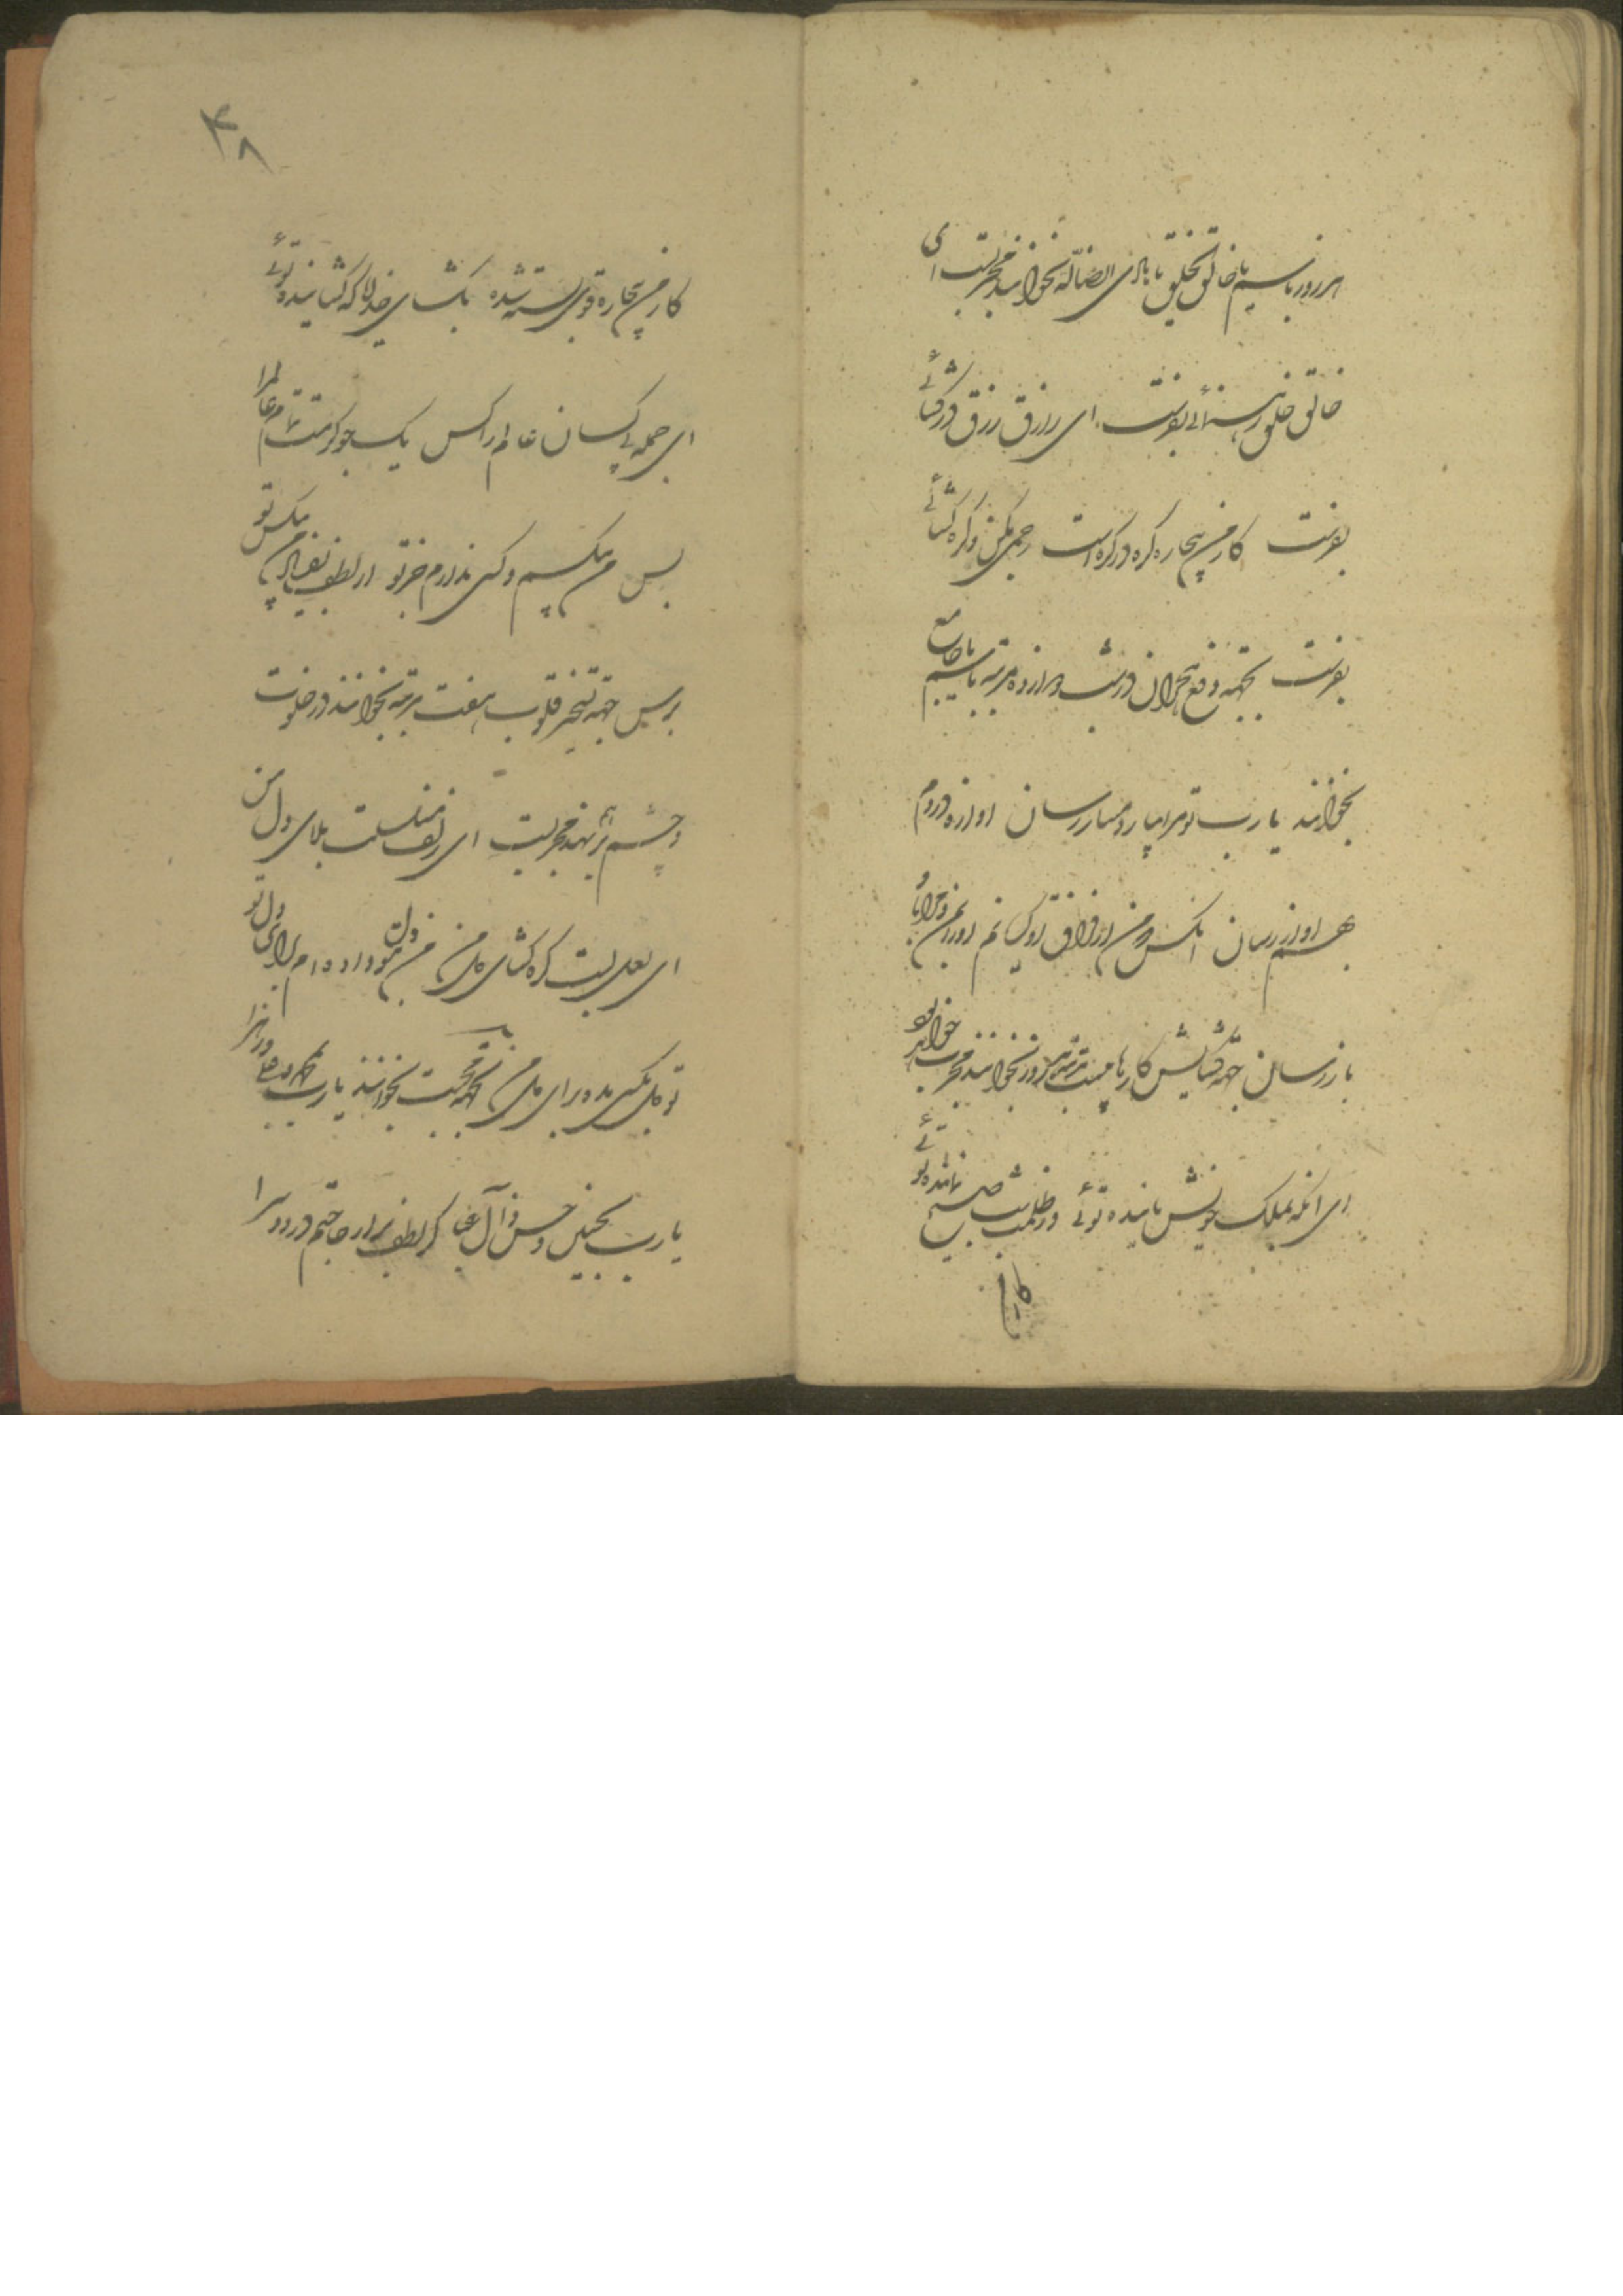 هر روز باسیم یا خالق الخلق یا هادی الضاله بخوانند مجربست ای
خالق خلق رهنمائی بفرست ای رازق رزق در کشائی
بفرست کار من بیچاره گره در گره است رحمی بکن و گره کشائی
بفرست بجهه دفع هجران در شب دوازده مرتبه باسیم یا جامع
بخوانند یا رب تو مرا بیار دمساز رسان اوازه دردم
بهم اواز رسان انکس که من از فراق او غمگینم او را بمن و مرا باو
باز رسان جهة کشایش کارها بیست مرتبه هر روز بخوانند مجرب خواهد بود
ای انکه بملک خویش پاینده توئی در ظلمت شب صبح نماینده توئی
کار من
۴۸
کار من بیچاره قوی بسته شده بکشای خدایا که کشاینده توئی
ای جمله بی کسان عالم را کس یک جو کرمت تمام عالم را
بس من بیکسم و کسی ندارم جز تو از لطف بفریاد من بیکس تو
برس جهة تسخیر قلوب هفت مرتبه بخوانند در خلوت
و چشم بر هم نهند مجربست ای زلف مسلسلت بلای دل من
ای لعل لبت گره کشای دل من من دل بتو داده‌ام برای دل تو
تو دل بکسی مده برای دل من بجهة محبت بخوانند یا رب بمحمد و علی و زهرا
یا رب بحسین و حسن و آل عبا کز لطف برار حاجتم در دو سرا